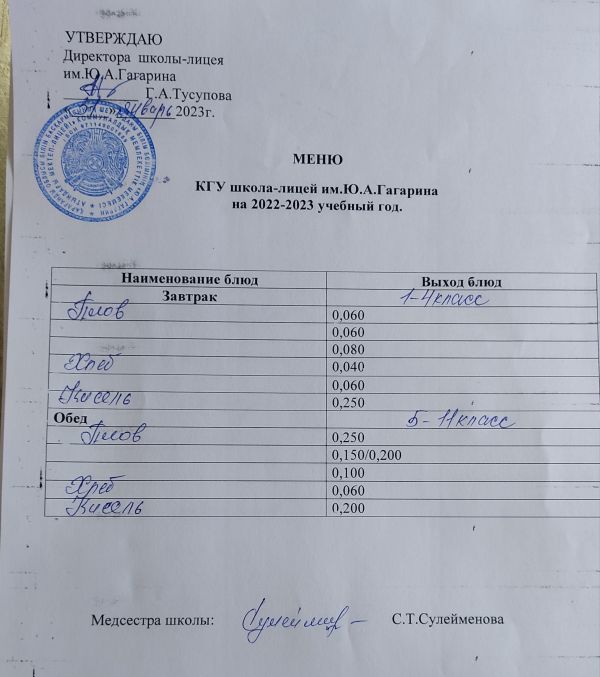 УТВЕРЖДАЮ
Директора школы-лицея
им.Ю.А.Гагарина
Г.А.Тусупова
январь 2023г.
МЕНЮ
КГУ школа-лицей им.Ю.А.Гагарина
на 2022-2023 учебный год.
Наименование блюд Выход блюд
Завтрак 1-4 класс
Плов 0,060
0,060
0,080
Хлеб 0,040
0,060
Кисель 0,250
Обед 5-11 класс
Плов 0,250
0,150/0,200
0,100
Хлеб 0,060
Кисель 0,200
Медсестра школы: С.Т.Сулейменова